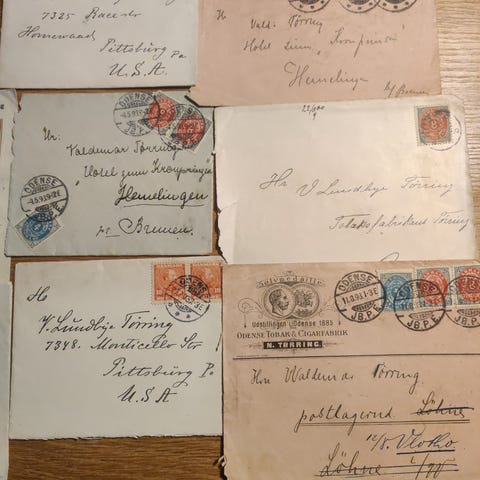 7325 Race str
Homewood
Pittsburg Pa
U.S.A.
H
Vald. Törring
Hotel zum "Kronprinsen"
Hemelingen
b/ Bremen
ODENSE
-4.5.93.9-2E
JB.P.E
Hr.
Valdemar Törring
"Hotel zum Kronprinsen"
Hemelingen
pr Bremen.
ODENSE
-4.5.93.9-2E
Hr V Lundbye Törring
Tobaksfabrikant Törring
Hr
V. Lundbye Törring
7348. Monticello Str
Pittsburg Pa
U.S.A
Sølvmedaille
Udstillingen i Odense 1885
ODENSE TOBAK & CIGARFABRIK
N. TØRRING.
ODENSE
11.8.93.1-3E
JB.P.E
Hrn Waldemar Törring.
postlagernd Löhne
12/8. Vlotho
Löhne i/W